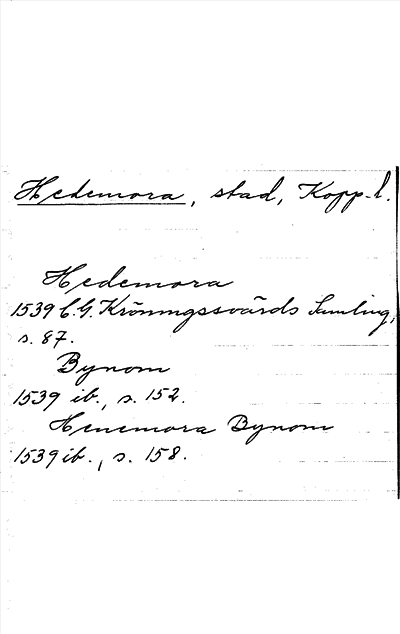 Hedemora, stad, Kopp. l.
Hedemora
1539 C.G. Kröningssvärds Samling,
s. 87.
Bynom
1539 ib., s. 152.
Henemora Bynom
1539 ib., s. 158.